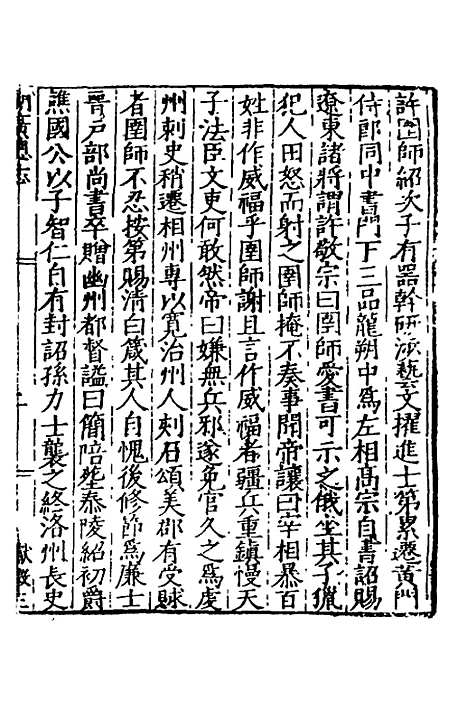 許圉師紹次子有器幹研涉藝文擢進士第累遷黃門
侍郎同中書門下三品龍朔中爲左相高宗自書詔賜
遼東諸將謂許敬宗曰圉師愛書可示之俄坐其子獵
犯人田怒而射之圉師掩不奏事聞帝讓曰宰相暴百
姓非作威福乎圉師謝且言作威福者疆兵重鎮慢天
子法臣文吏何敢然帝曰嫌無兵邪遂免官久之爲虔
州刺史稍遷相州專以寛治州人刻石頌美郡有受賕
者圉師不忍按第賜清白箴其人自愧後修飭爲廉士
晉戸部尚書卒贈幽州都督謚曰簡陪塟泰陵紹初爵
譙國公以子智仁自有封詔孫力士襲之終洛州長史